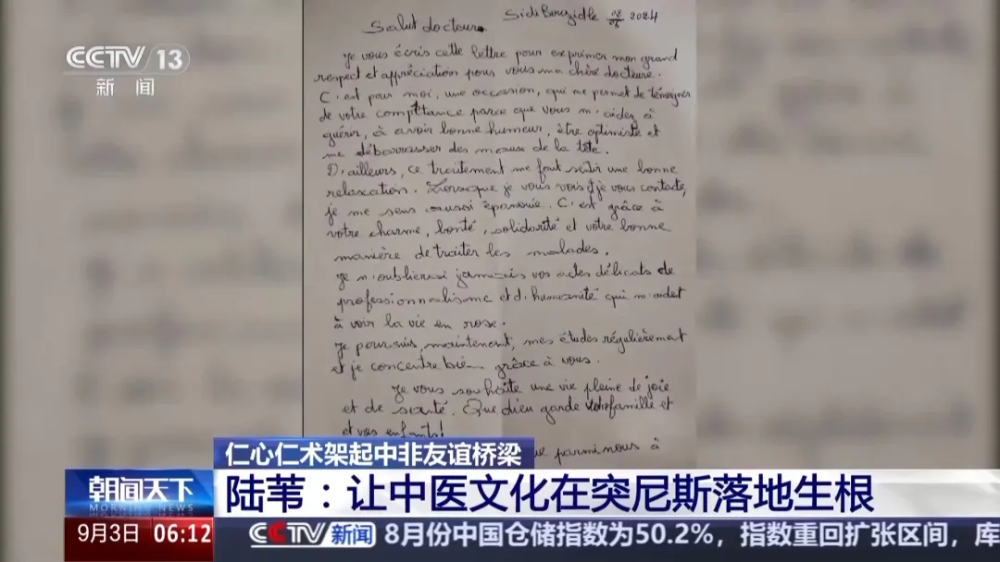 CCTV 13
新闻
Salut docteur.
Sidi Bouzid le 02/05 2024
Je vous écris cette lettre pour exprimer mon grand
respect et appréciation pour vous ma chère docteure.
C'est pour moi, une occasion, qui me permet de témoigner
de votre compétance parce que vous m'aidez à
guérir, à avoir bonne humeur, être optimiste et
me débarrasser des maux de la tête.
D'ailleurs, ce traitement me fait sentir une bonne
relaxation. Lorsque je vous vois et je vous contacte,
je me sens aussi épanouie. C'est grâce à
votre charme, bonté, solidarité et votre bonne
manière de traiter les malades.
Je n'oublierai jamais vos actes délicats de
professionnalisme et d'humanité qui m'aident
à voir la vie en rose.
Je poursuis, maintenant, mes études régulièrement
et je concentre bien grâce à vous.
Je vous souhaite une vie pleine de joie
et de santé. Que dieu garde votre famille et
et vos enfants!
parmi nous à
仁心仁术架起中非友谊桥梁
朝闻天下
MORNING NEWS
陆苇：让中医文化在突尼斯落地生根
9月3日 06:12
CCTV 新闻 8月份中国仓储指数为50.2%，指数重回扩张区间，库